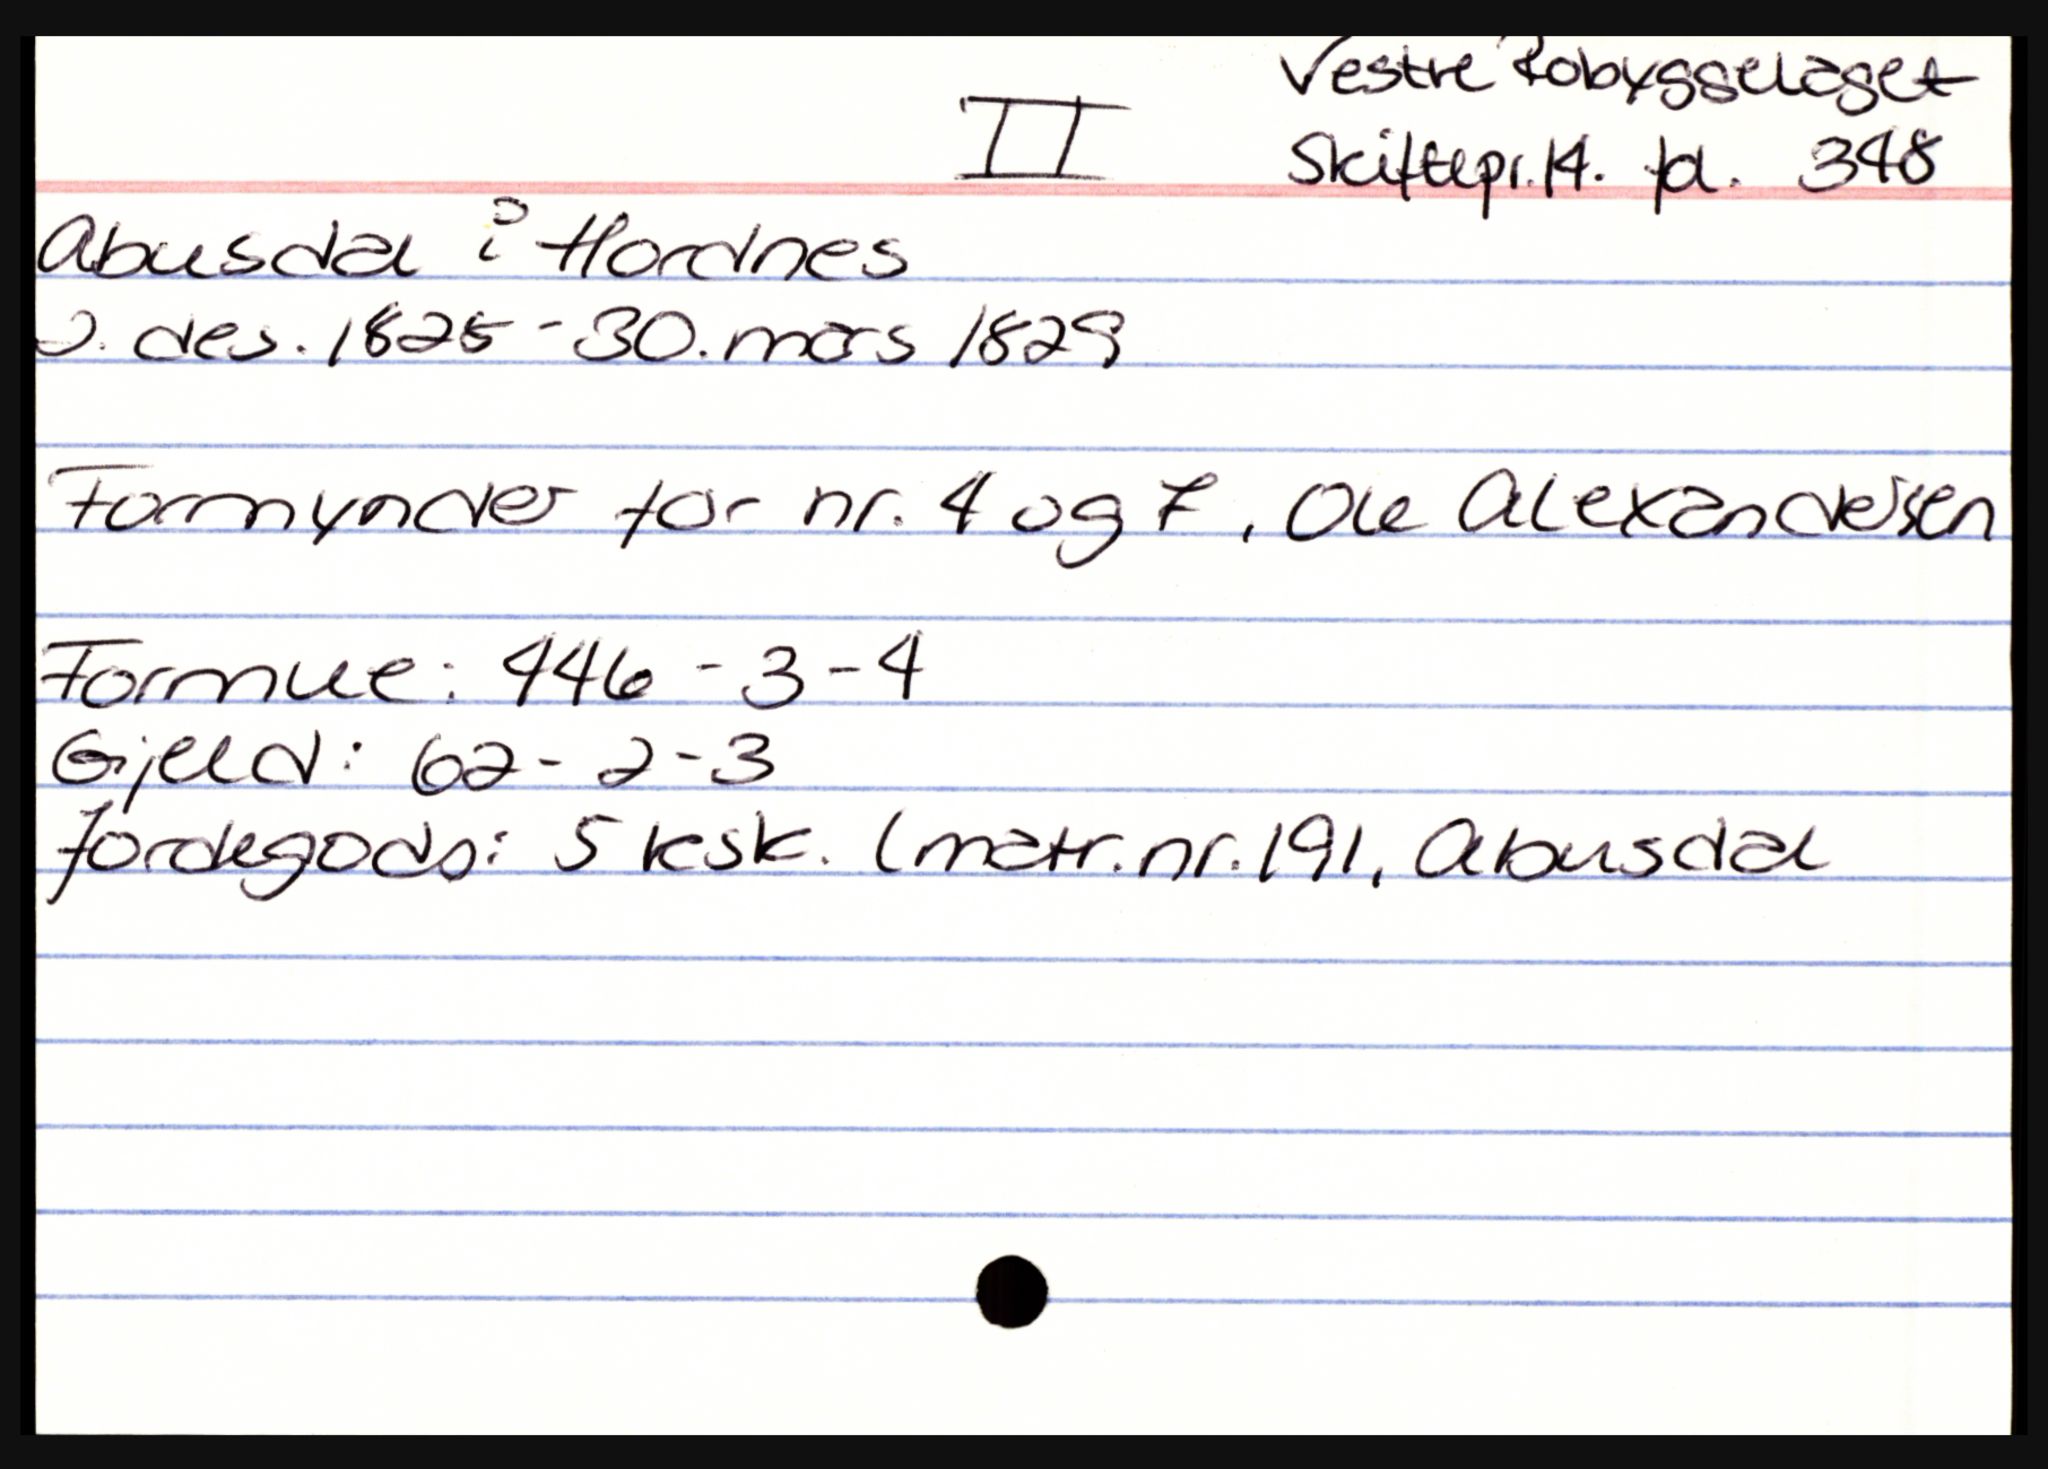 Vestre Robyggelaget
II
Skiftepr. 14. fol. 348
Abusdal i Hordnes
2. des. 1825 - 30. mars 1829
Formynder for nr. 4 og 7, Ole Alexandersen
Formue: 446 - 3 - 4
Gjeld: 62 - 2 - 3
Jordegods: 5 kšk. (matr. nr. 191, Abusdal